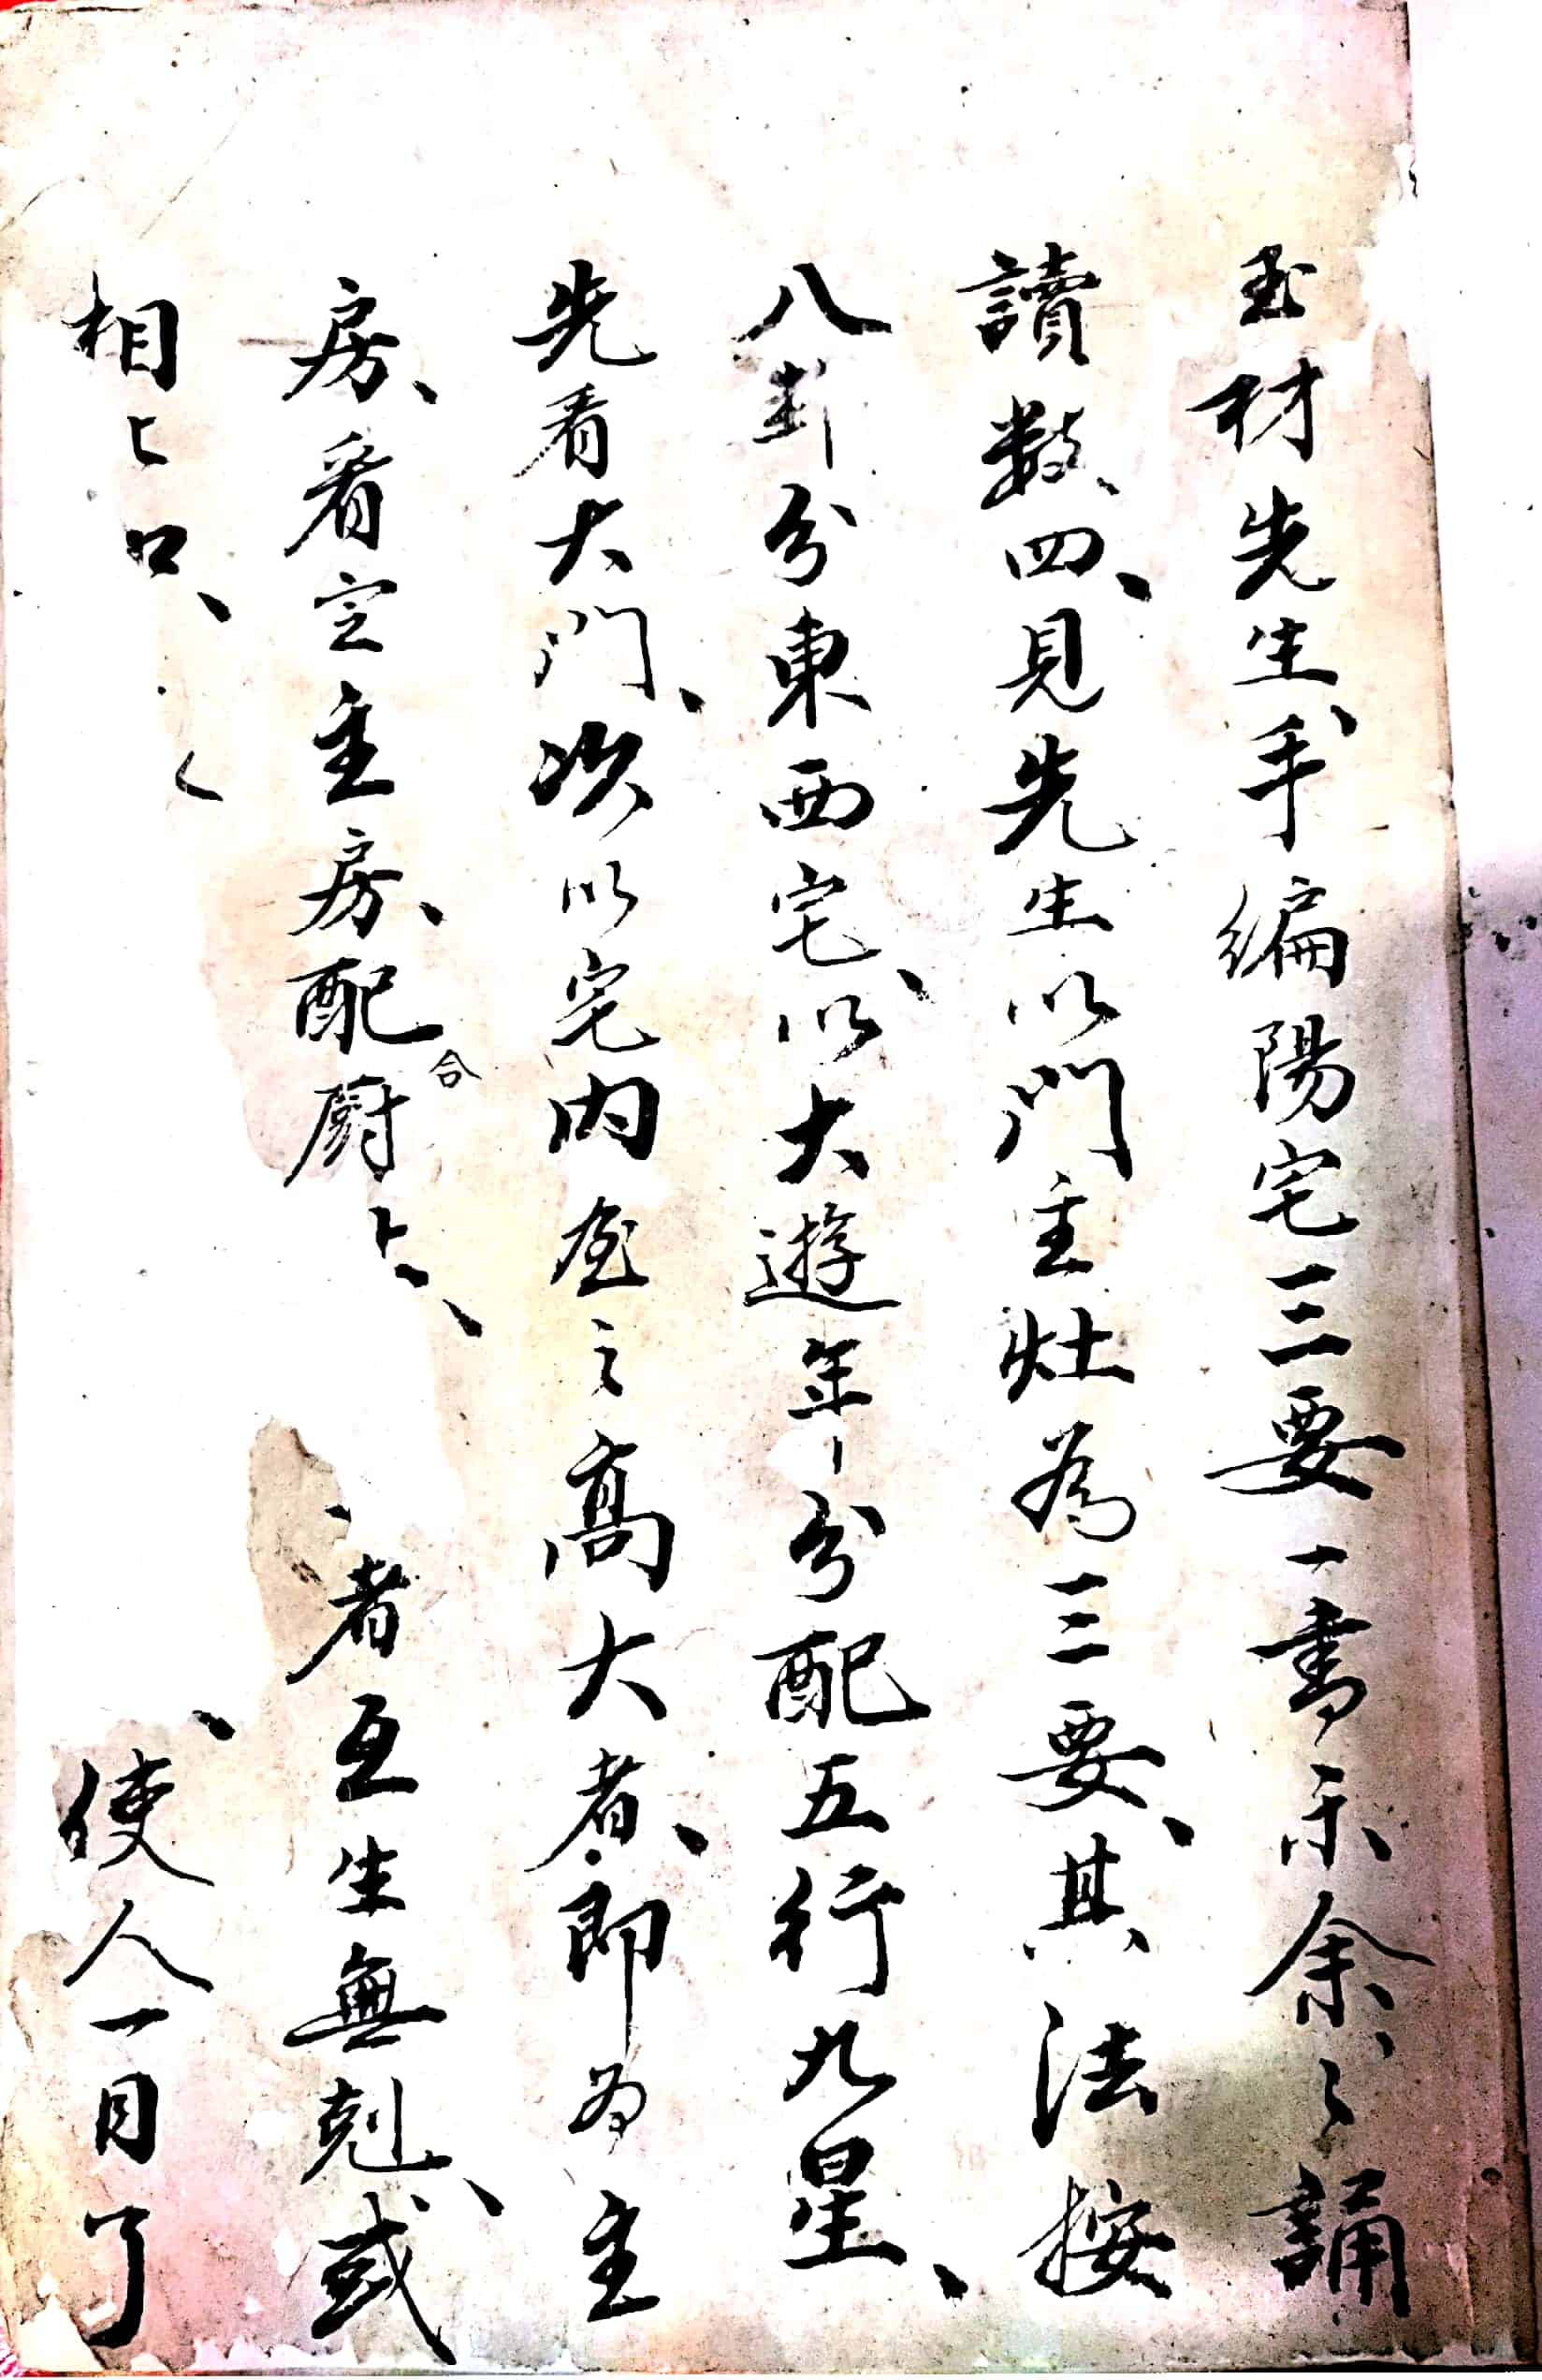 玉材先生手編陽宅三要一書示余余誦
讀數四見先生以門主灶為三要其法按
八卦分東西宅以大遊年分配五行九星
先看大門次以宅內屋之高大者即为主
房看定主房配合厨
者互生無剋或
相
使人一目了